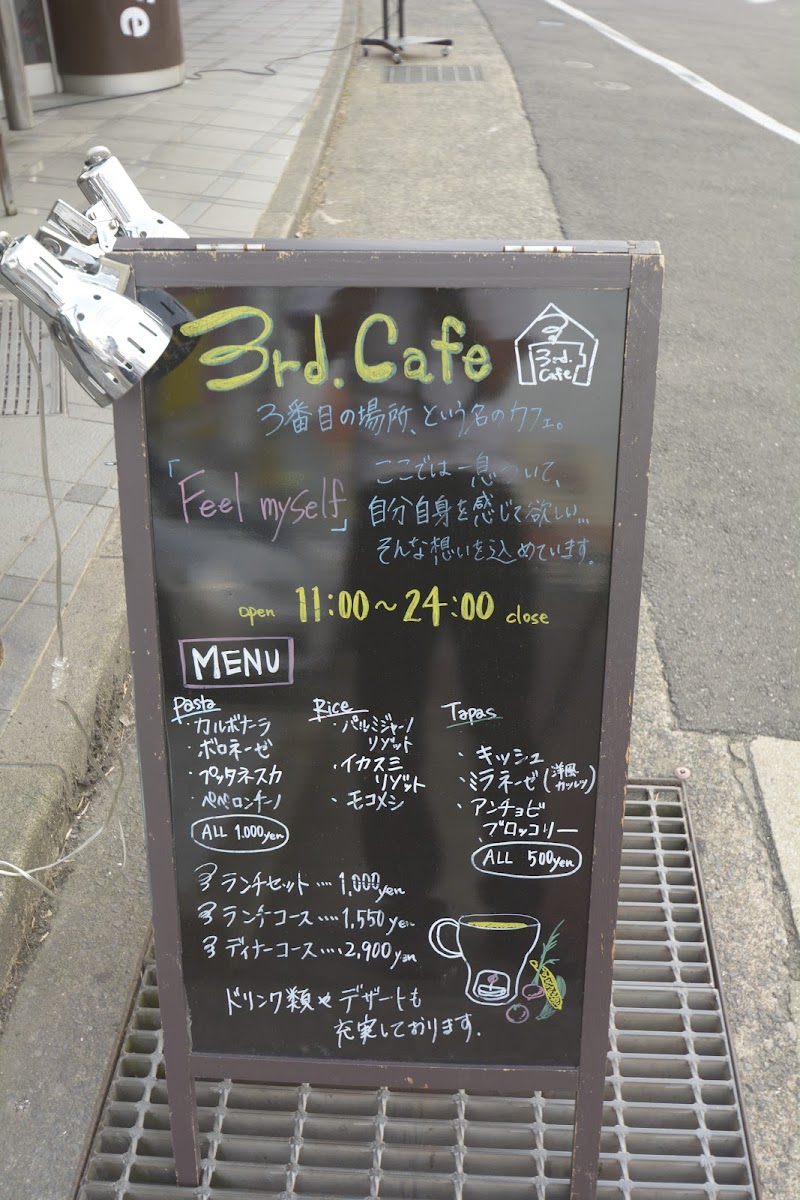 fe
3rd. Cafe
3rd.
Cafe
3番目の場所、という名のカフェ。
「Feel myself」
ここでは一息ついて、
自分自身を感じて欲しい…
そんな想いを込めています。
open 11:00~24:00 close
MENU
Pasta
・カルボナーラ
・ボロネーゼ
・プッタネスカ
・ペペロンチーノ
ALL 1.000yen
Rice
・パルミジャーノ
リゾット
・イカスミ
リゾット
・モコメシ
Tapas
・キッシュ
・ミラネーゼ(洋風カツレツ)
・アンチョビ
ブロッコリー
ALL 500yen
ランチセット…1,000yen
ランチコース….1,550yen
ディナーコース….2,900yen
ドリンク類やデザートも
充実しております.